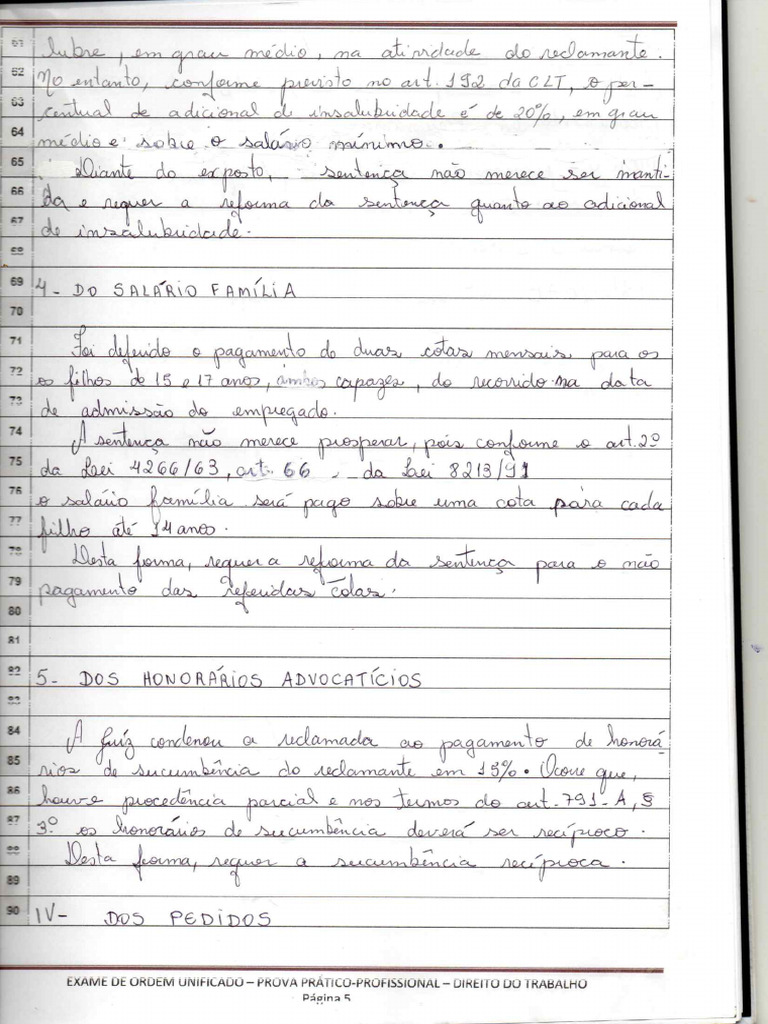 61 lubre, em grau médio, na atividade do reclamante.
62 No entanto, conforme previsto no art. 192 da CLT, o per-
63 centual de adicional de insalubridade é de 20%, em grau
64 médio e sobre o salário mínimo.
65 Diante do exposto, sentença não merece ser manti-
66 da e requer a reforma da sentença quanto ao adicional
67 de insalubridade.
68
69 4- DO SALÁRIO FAMÍLIA
70
71 Foi deferido o pagamento de duas cotas mensais para os
72 os filhos de 15 e 17 anos, ambos capazes, do recorrido na data
73 de admissão do empregado.
74 A sentença não merece prosperar, pois conforme o art. 2º
75 da Lei 4266/63, art. 66 da Lei 8213/91
76 o salário família será pago sobre uma cota para cada
77 filho até 14 anos.
78 Desta forma, requer a reforma da sentença para o não
79 pagamento das referidas cotas.
80
81
82 5- DOS HONORÁRIOS ADVOCATÍCIOS
83
84 A Juíz condenou a reclamada ao pagamento de honorá-
85 rios de sucumbência do reclamante em 15%. Ocorre que,
86 houve procedência parcial e nos termos do art. 791-A, §
87 3º os honorários de sucumbência deverá ser recíproco.
88 Desta forma, requer a sucumbência recíproca.
89
90 IV- DOS PEDIDOS
EXAME DE ORDEM UNIFICADO – PROVA PRÁTICO-PROFISSIONAL – DIREITO DO TRABALHO
Página 5